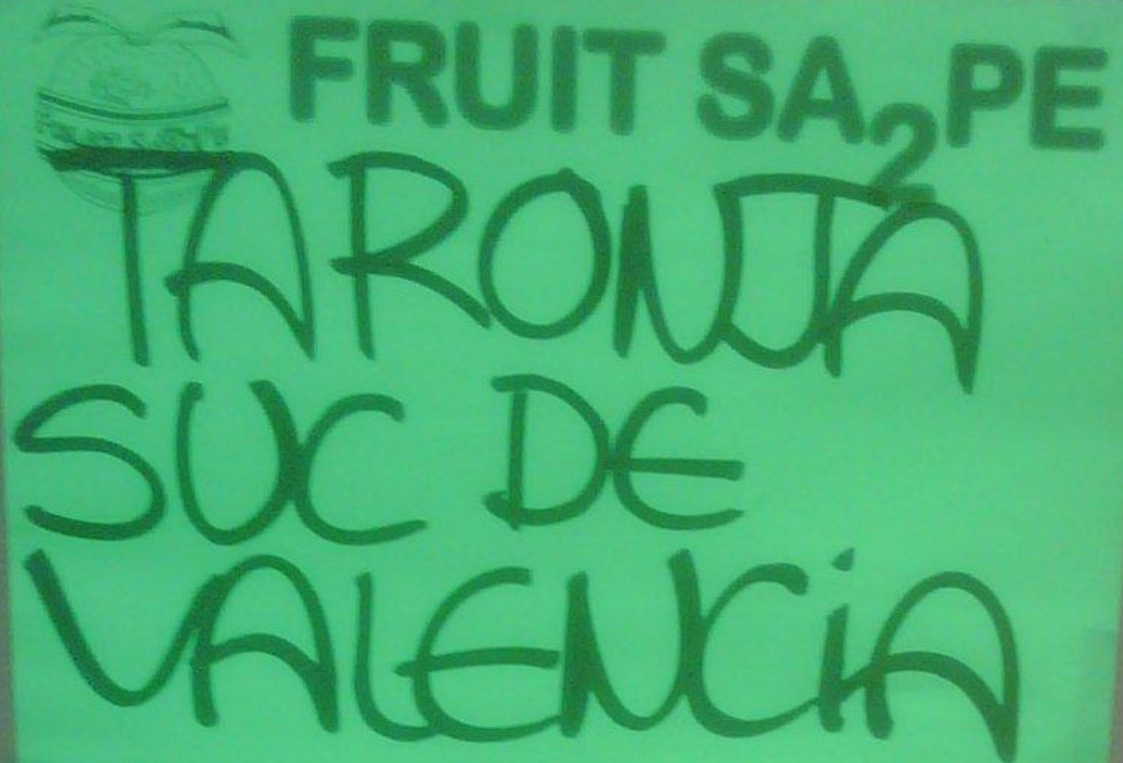 FRUIT SA2PE
TARONJA
SUC DE
VALENCIA